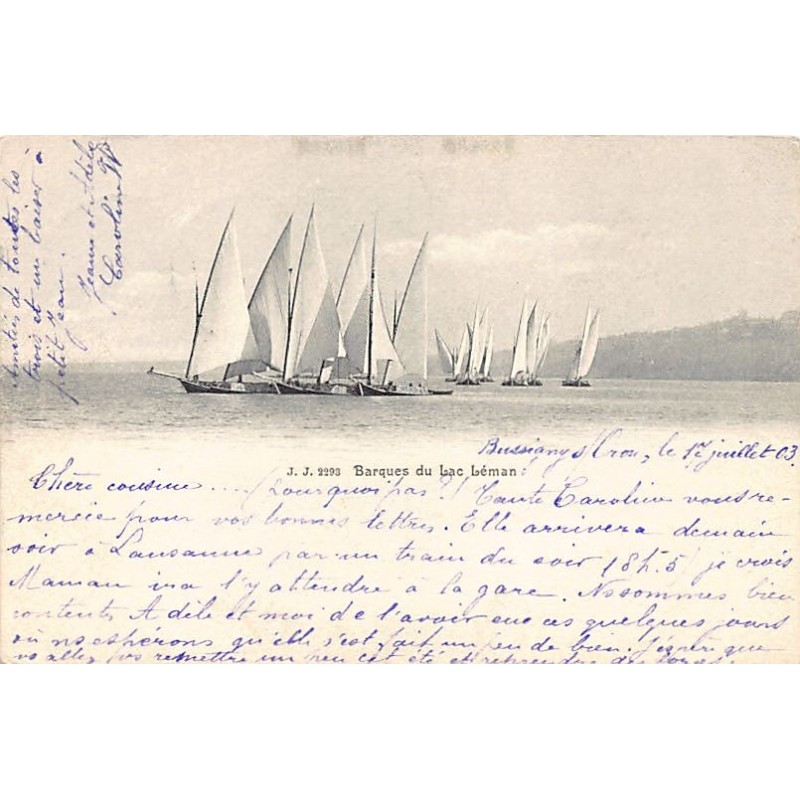 J. J. 2293 Barques du Lac Léman
Bussigny s/Oron, le 17 juillet 03.
Chère cousine .... (pourquoi pas?) Tante Caroline vous re-
mercie pour vos bonnes lettres. Elle arrivera demain
soir à Lausanne par un train du soir (8h5) je crois
Maman ira l'y attendre à la gare. Ns sommes bien
contents Adèle et moi de l'avoir eue ces quelques jours
où ns espérons qu'elle s'est fait un peu de bien. J'espère que
vs allez vs remettre un peu cet été et reprendre des
Amitiés de toutes les
trois et un baiser à
petit Jean.
Jeanne et Adèle
Caroline